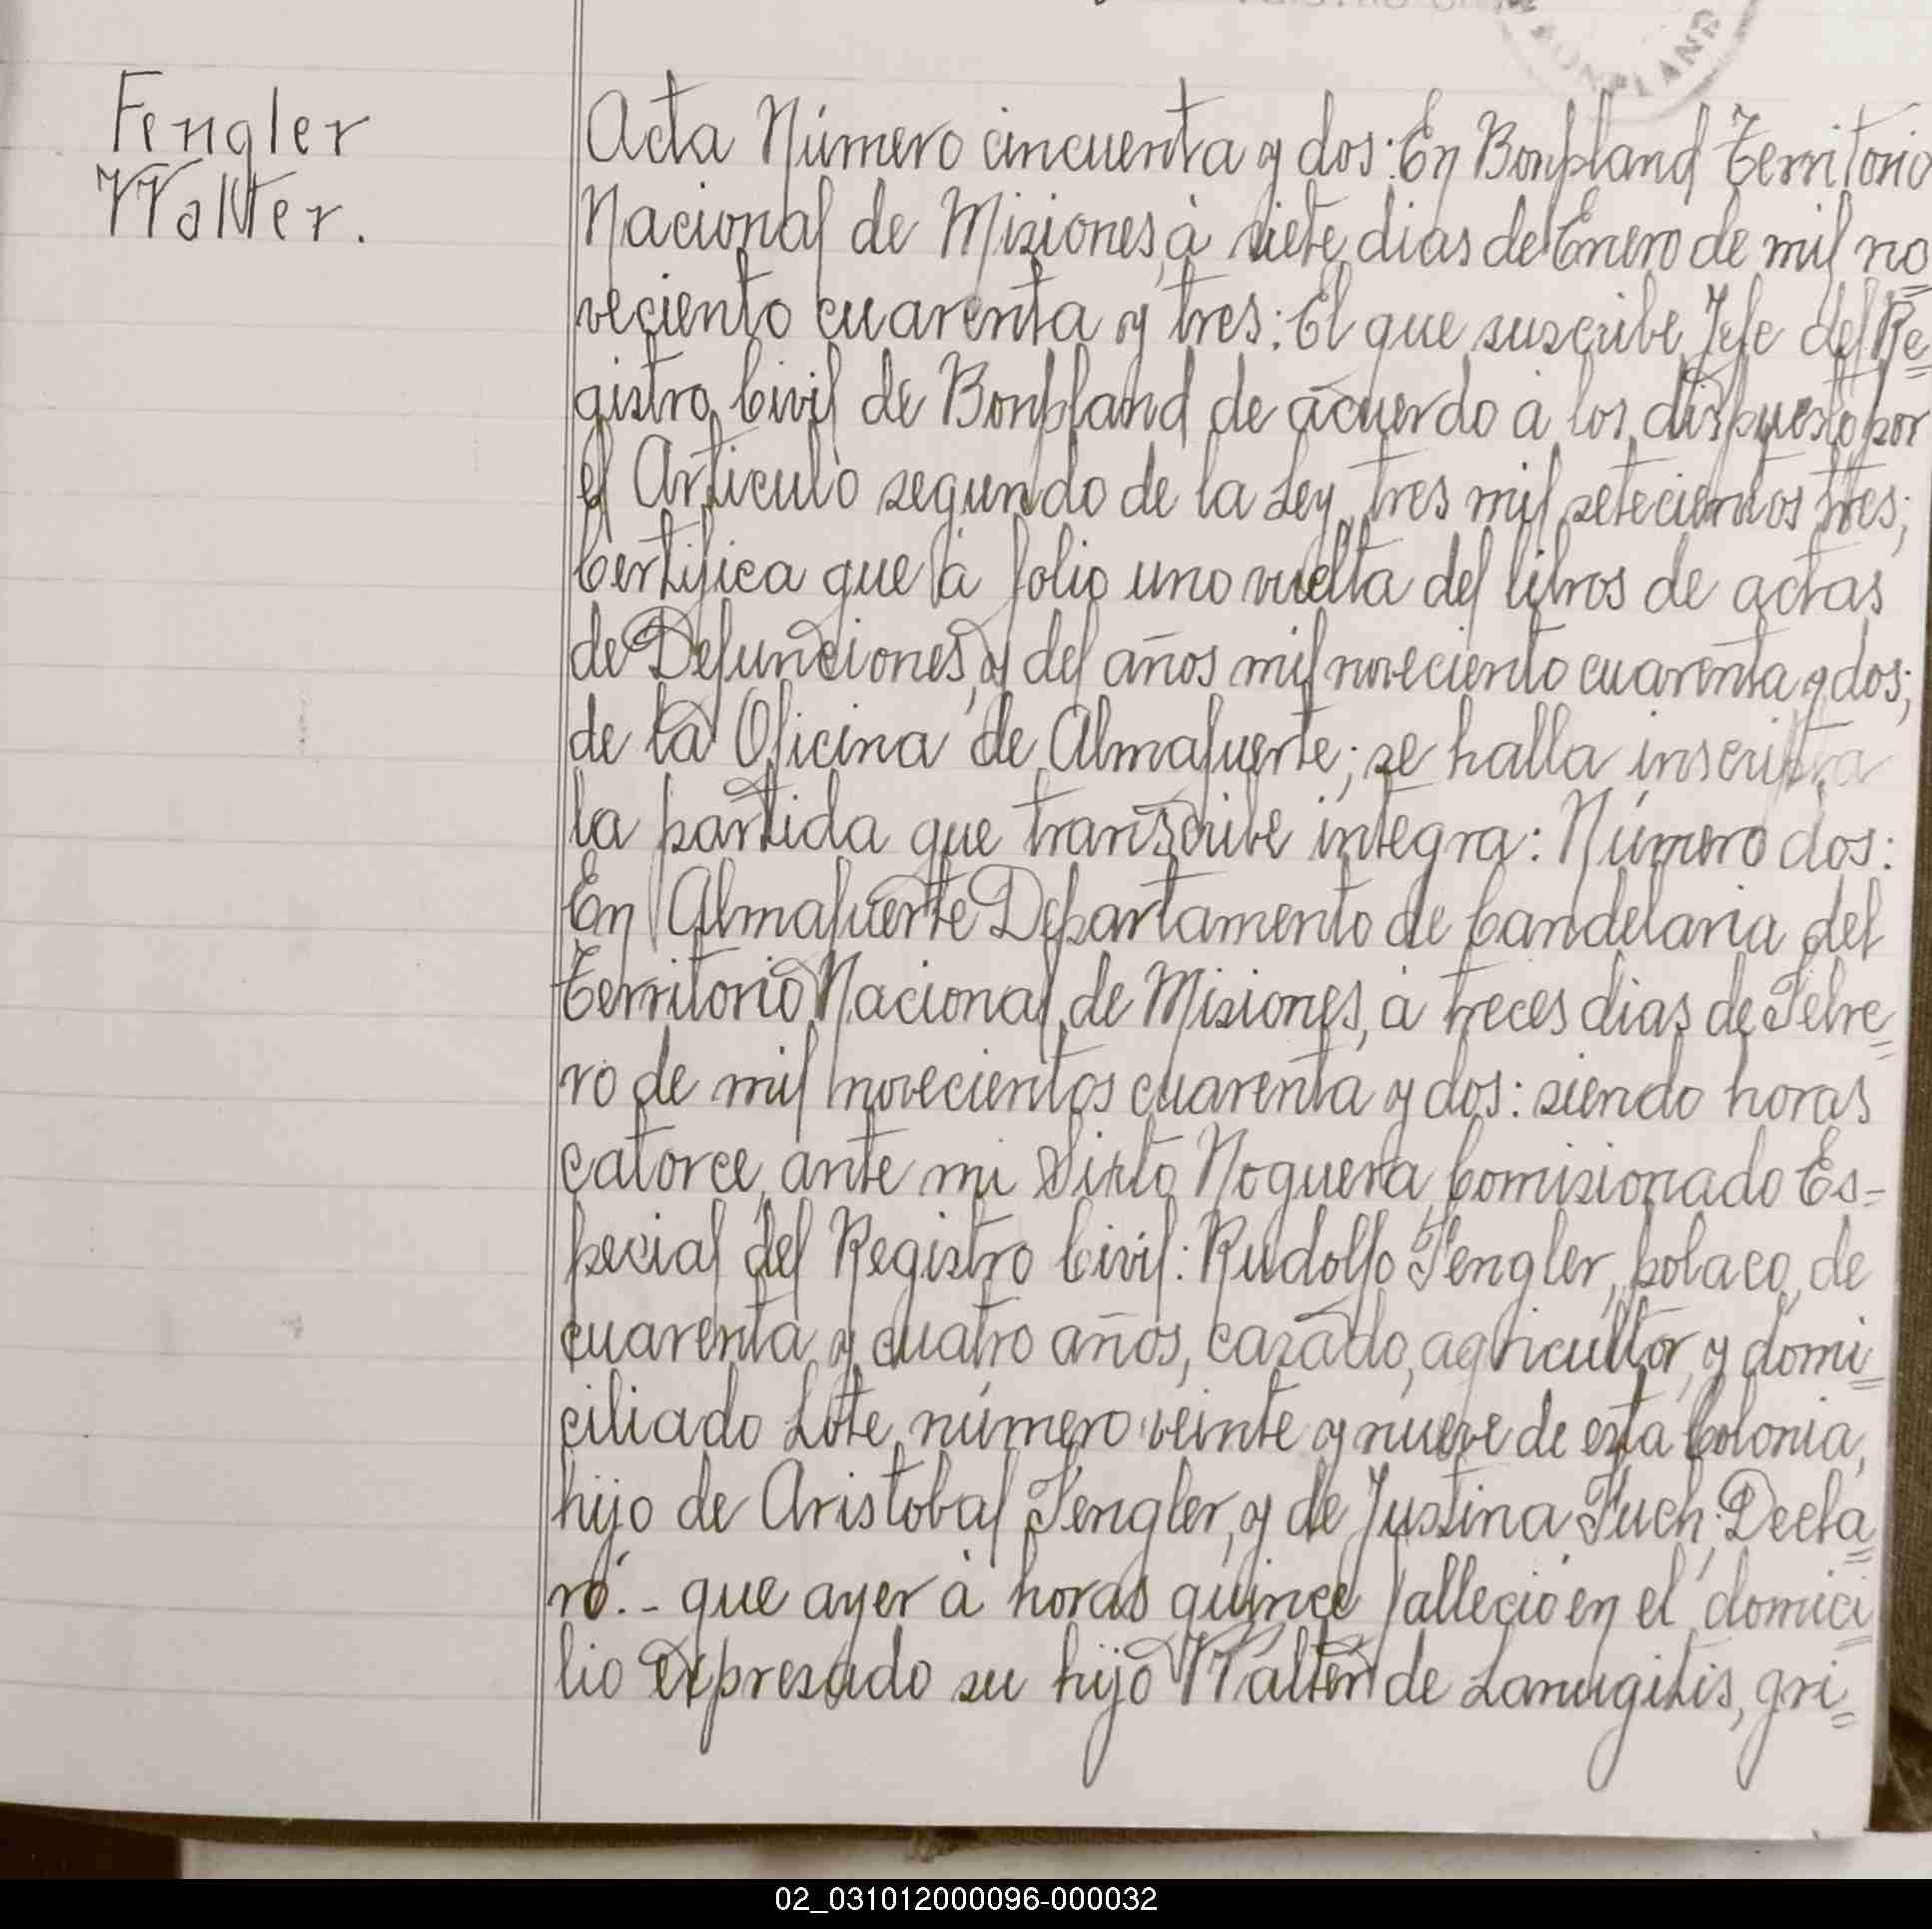 BONPLAND
Fengler
Walter.
Acta Número cincuenta y dos: En Bonpland Territorio
Nacional de Misiones, à siete dias de Enero de mil no=
veciento cuarenta y tres: El que suscribe, Jefe del Re=
gistro Civil de Bonpland de acuerdo à los dispuesto por
el Articulo segundo de la Ley, tres mil setecientos tres;
Certifica que à folio uno vuelta del libros de actas
de Defunciones, y del años mil noveciento cuarenta y dos;
de la Oficina de Almafuerte; se halla inscripta
la partida que transcribe integra: Número dos:
En Almafuerte Departamento de Candelaria del
Territorio Nacional de Misiones, à treces dias de Febre=
ro de mil novecientos cuarenta y dos: siendo horas
catorce, ante mi Sixto Noguera, Comisionado Es=
pecial del Registro Civil: Rudolfo Fengler, polaco, de
cuarenta y cuatro años, casado, agricultor, y domi=
ciliado Lote, número veinte y nueve de esta Colonia,
hijo de Aristobal Fengler, y de Justina Fuch: Decla=
ró.- que ayer à horas quince, falleció en el domici=
lio expresado su hijo Walter de Larugitis, gri=
02_031012000096-000032